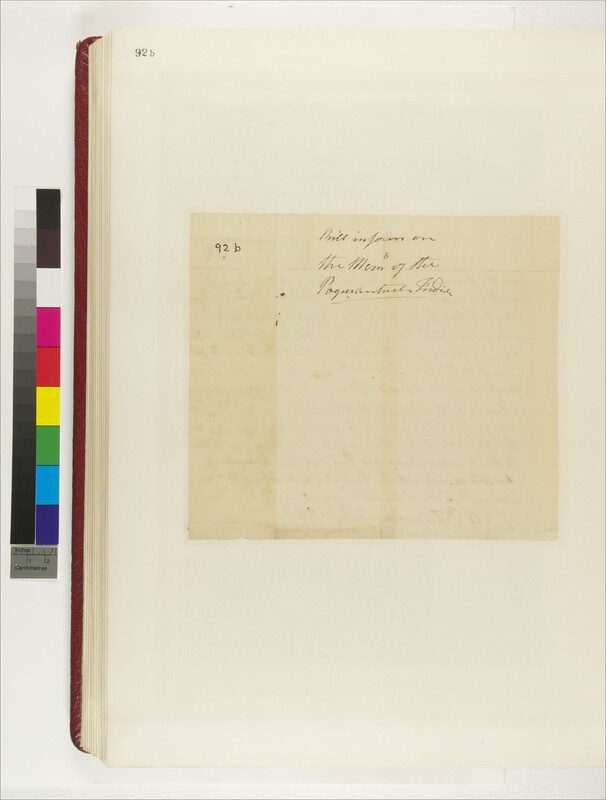 92b
92 b
Bill in form on
the Mem° of the
Paquantuck Indis
Inches 1
Centimetres 1 2